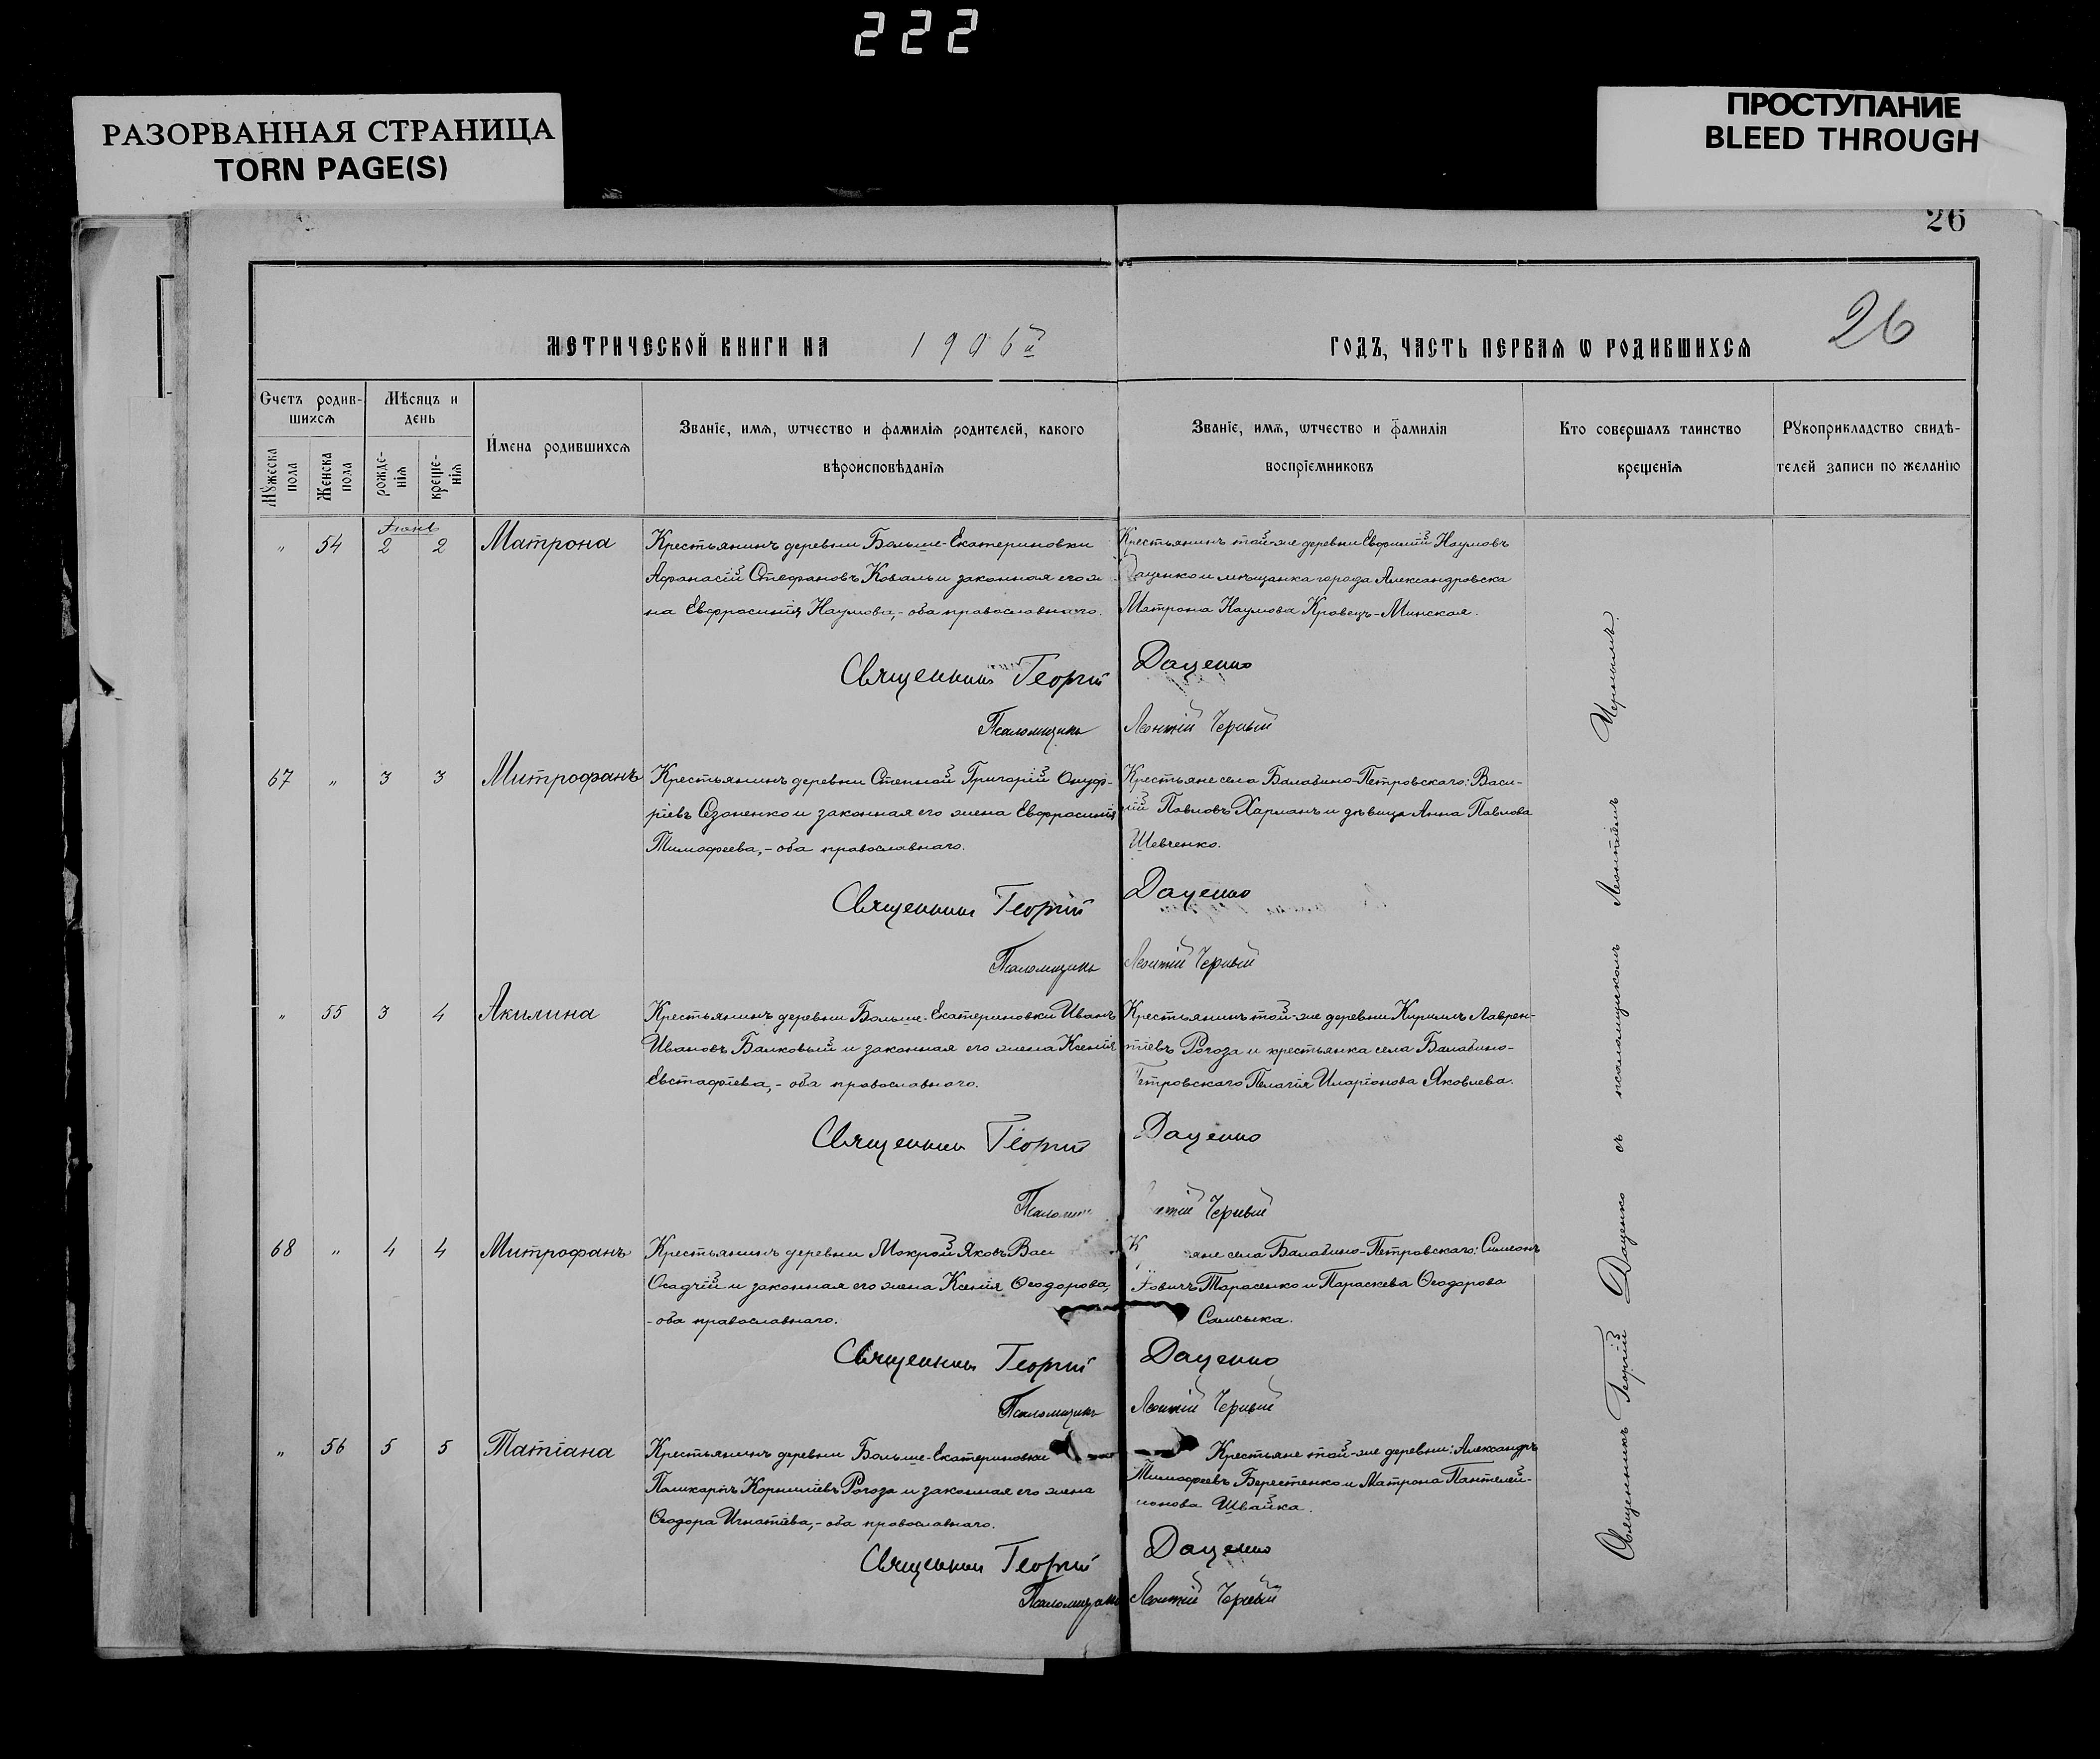 222
РАЗОРВАННАЯ СТРАНИЦА
TORN PAGE(S)
ПРОСТУПАНИЕ
BLEED THROUGH
26
26
МЕТРИЧЕСКОЙ КНИГИ НА 1906й ГОДЪ, ЧАСТЬ ПЕРВАЯ Ѡ РОДИВШИХСѦ
Счетъ родив-
шихсѧ
Мꙋжеска
пола
Женска
пола
Мѣсяцъ и
день
рожде-
нїѧ
креще-
нїѧ
Имена родившихсѧ
Званїе, имѧ, ѡтчество и фамилїѧ родителей, какого
вѣроисповѣданїѧ
Званїе, имѧ, ѡтчество и фамилїѧ
воспрїемниковъ
Кто совершалъ таинство
крещенїѧ
Рꙋкоприкладство свидѣ-
телей записи по желанїю
Іюнь
" 54 2 2 Матрона
Крестьянинъ деревни Больше-Екатериновки
Афанасій Стефановъ Коваль и законная его ж
на Евфросинія Наумова,- оба православнаго.
Крестьянинъ той-же деревни Евфимій Наумовъ
Даценко и мѣщанка города Александровска
Матрона Наумова Кравецъ-Минская.
Священникъ Георгій Даценко
Псаломщикъ Леонтій Черный
67 " 3 3 Митрофанъ
Крестьянинъ деревни Степной Григорій Онуф-
ріевъ Сезоненко и законная его жена Евфросинія
Тимофеева,- оба православнаго.
Крестьяне села Балабино-Петровскаго: Васи-
лій Павловъ Харманъ и дѣвица Анна Павлова
Шевченко.
Священникъ Георгій Даценко
Псаломщикъ Леонтій Черный
" 55 3 4 Акилина
Крестьянинъ деревни Больше-Екатериновки Иванъ
Ивановъ Балковый и законная его жена Ксенія
Евстафіева,- оба православнаго.
Крестьянинъ той-же деревни Кириллъ Лаврен-
тіевъ Рогоза и крестьянка села Балабино-
Петровскаго Пелагія Иларіонова Яковлева.
Священникъ Георгій Даценко
Псалом нтій Черный
68 " 4 4 Митрофанъ
Крестьянинъ деревни Мокрой Яковъ Васи
Осадчій и законная его жена Ксенія Ѳеодорова,
- оба православнаго.
К яне села Балабино-Петровскаго: Симеонъ
Тарасенко и Параскева Ѳеодорова
Самсыка.
Священникъ Георгій Даценко
Псаломщикъ Леонтій Черный
" 56 5 5 Татіана
Крестьянинъ деревни Больше-Екатериновки
Поликарпъ Корниліевъ Рогоза и законная его жена
Ѳеодора Игнатіева,- оба православнаго.
Крестьяне той-же деревни: Александръ
Тимофеевъ Берестенко и Матрона Пантелей-
монова Швайка.
Священникъ Георгій Даценко
Псаломщикъ Леонтій Черный
Священникъ Георгій Даценко съ псаломщикомъ Леонтіемъ Чернымъ.